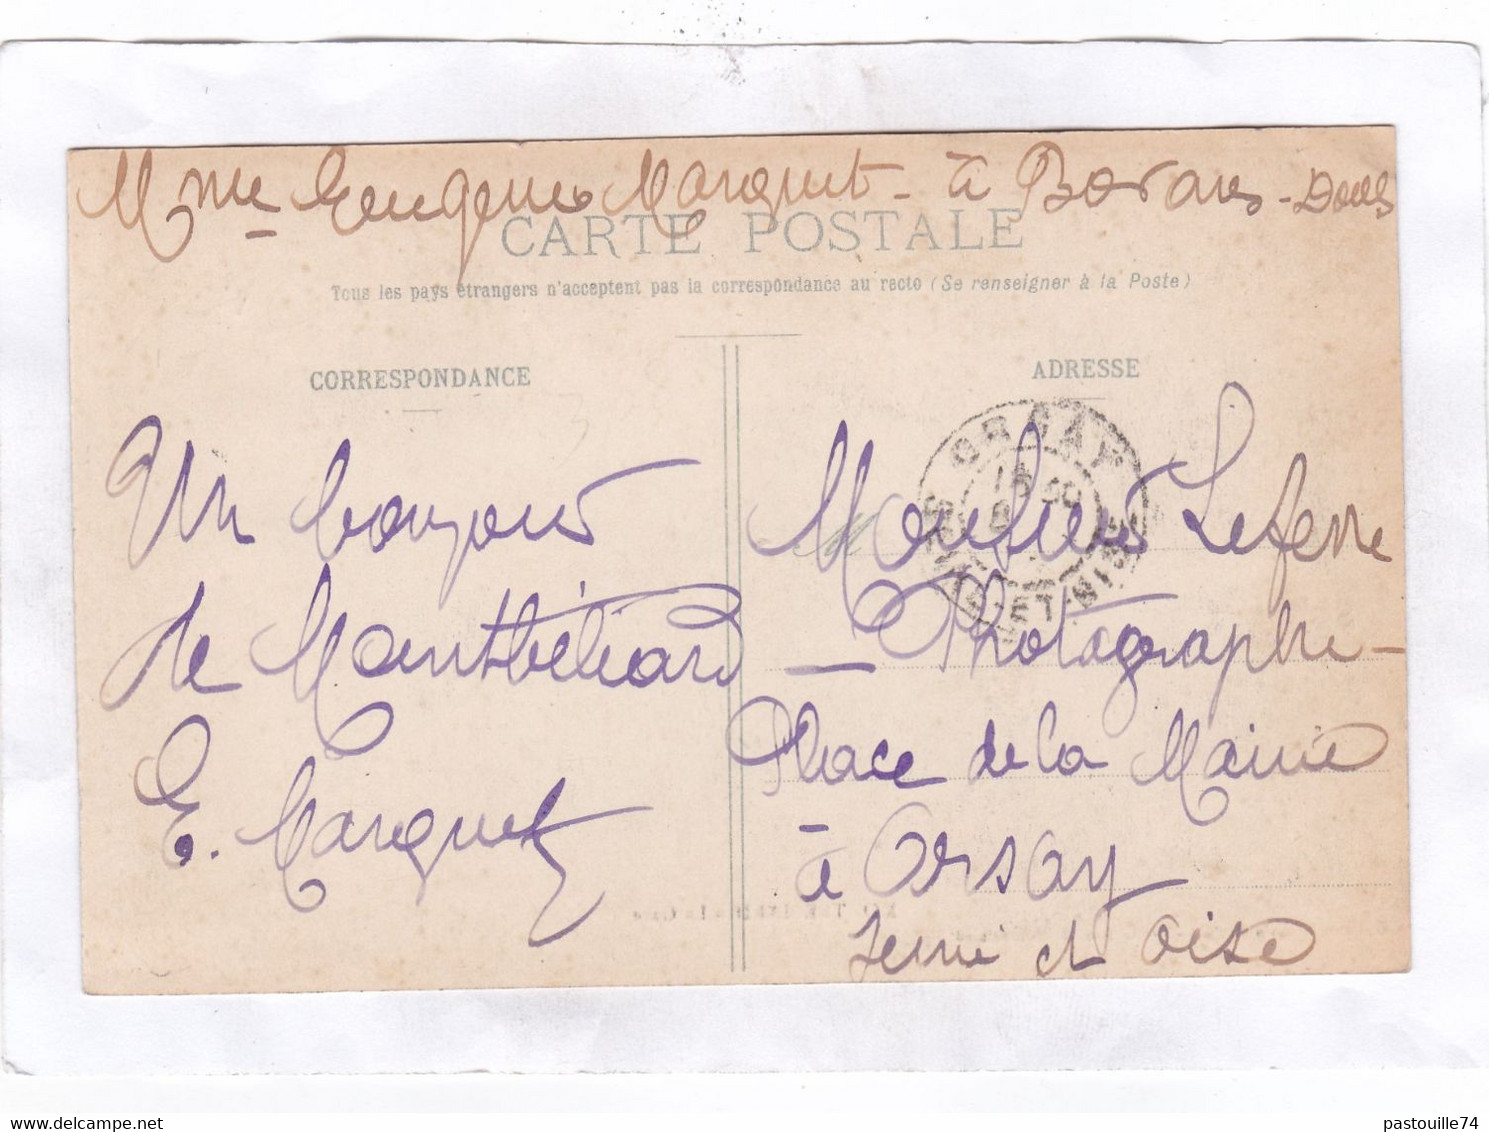 Mme Eugène Marquet - à Bavans - Doubs
CARTE POSTALE
Tous les pays étrangers n'acceptent pas la correspondance au recto (Se renseigner à la Poste)
CORRESPONDANCE
ADRESSE
Un bonjour
de Montbéliard
E. Marquet
ORSAY
SEINE-ET-OISE
Monsieur Lefevre
- Photographe -
Place de la Mairie
à Orsay
Seine et Oise
pastouille74